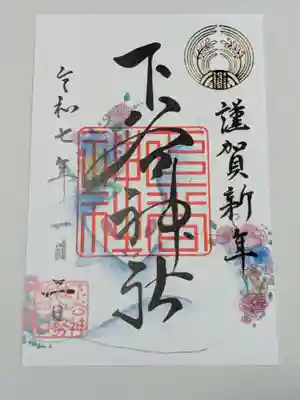 謹賀新年
下谷神社
令和七年一月二日
下谷神社